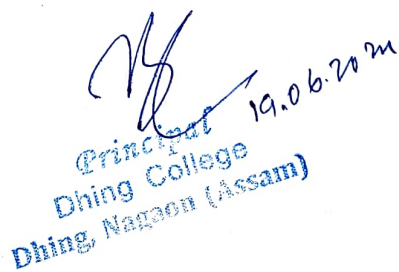 19.06.20
Principal
Dhing College
Dhing, Nagaon (Assam)